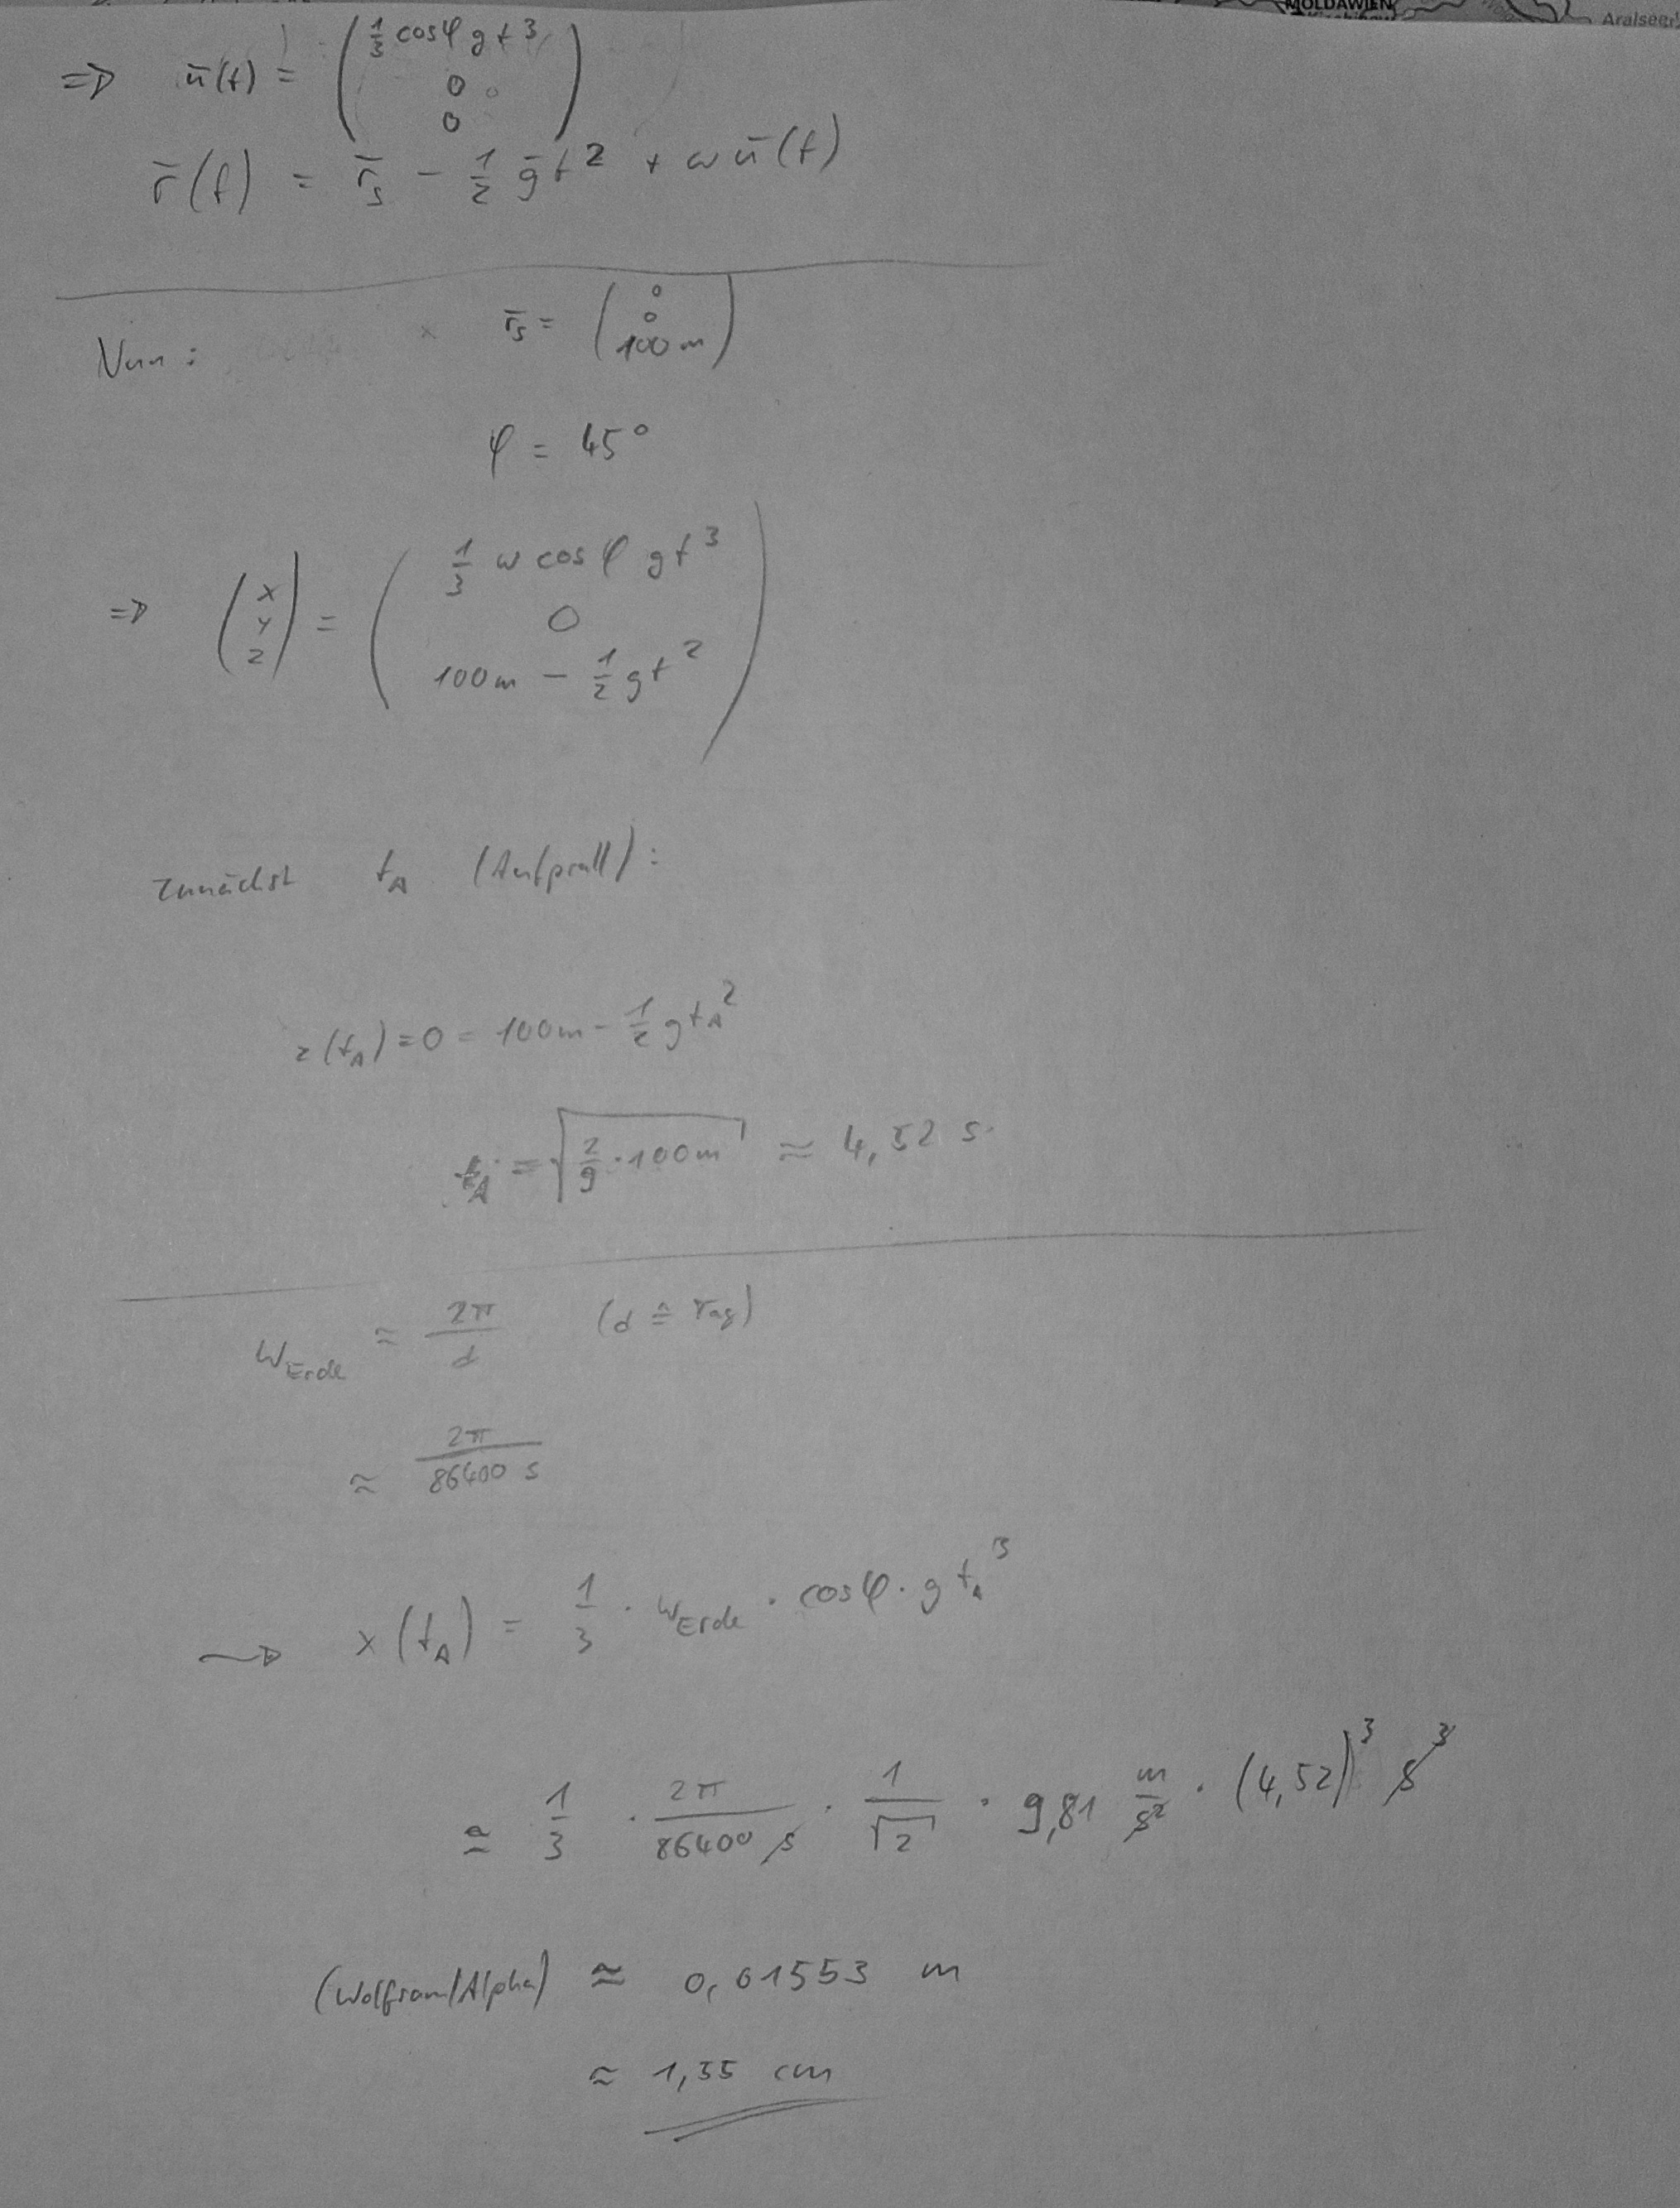 MOLDAWIEN
Aralsee
=> ū(t) = ( 1/3 cosφ g t³ 0 0 )
r̄(t) = r̄s - 1/2 ḡ t² + ω ū(t)
Nun: r̄s = ( 0 0 100 m )
φ = 45°
=> ( x y z ) = ( 1/3 ω cos φ g t³ 0 100m - 1/2 g t² )
zunächst tA (Aufprall):
z(tA) = 0 = 100m - 1/2 g tA²
tA = √(2/g · 100m) ≈ 4,52 s
ωErde ≈ 2π/d (d ≙ Tag)
≈ 2π/86400 s
→ x(tA) = 1/3 · ωErde · cosφ · g tA³
≈ 1/3 · 2π/86400 s · 1/√2 · 9,81 m/s² · (4,52)³ s³
(Wolfram/Alpha) ≈ 0,01553 m
≈ 1,55 cm